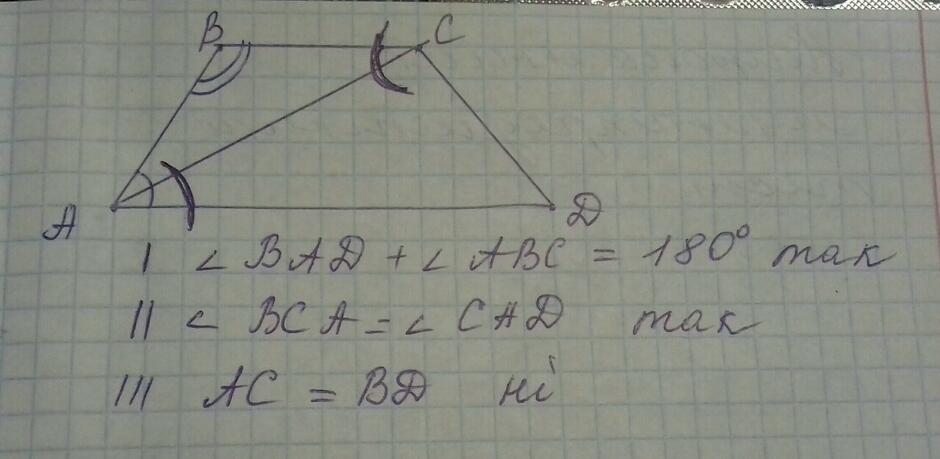 B C
A D
I ∠ BAD + ∠ ABC = 180° так
II ∠ BCA = ∠ CAD так
III AC = BD ні